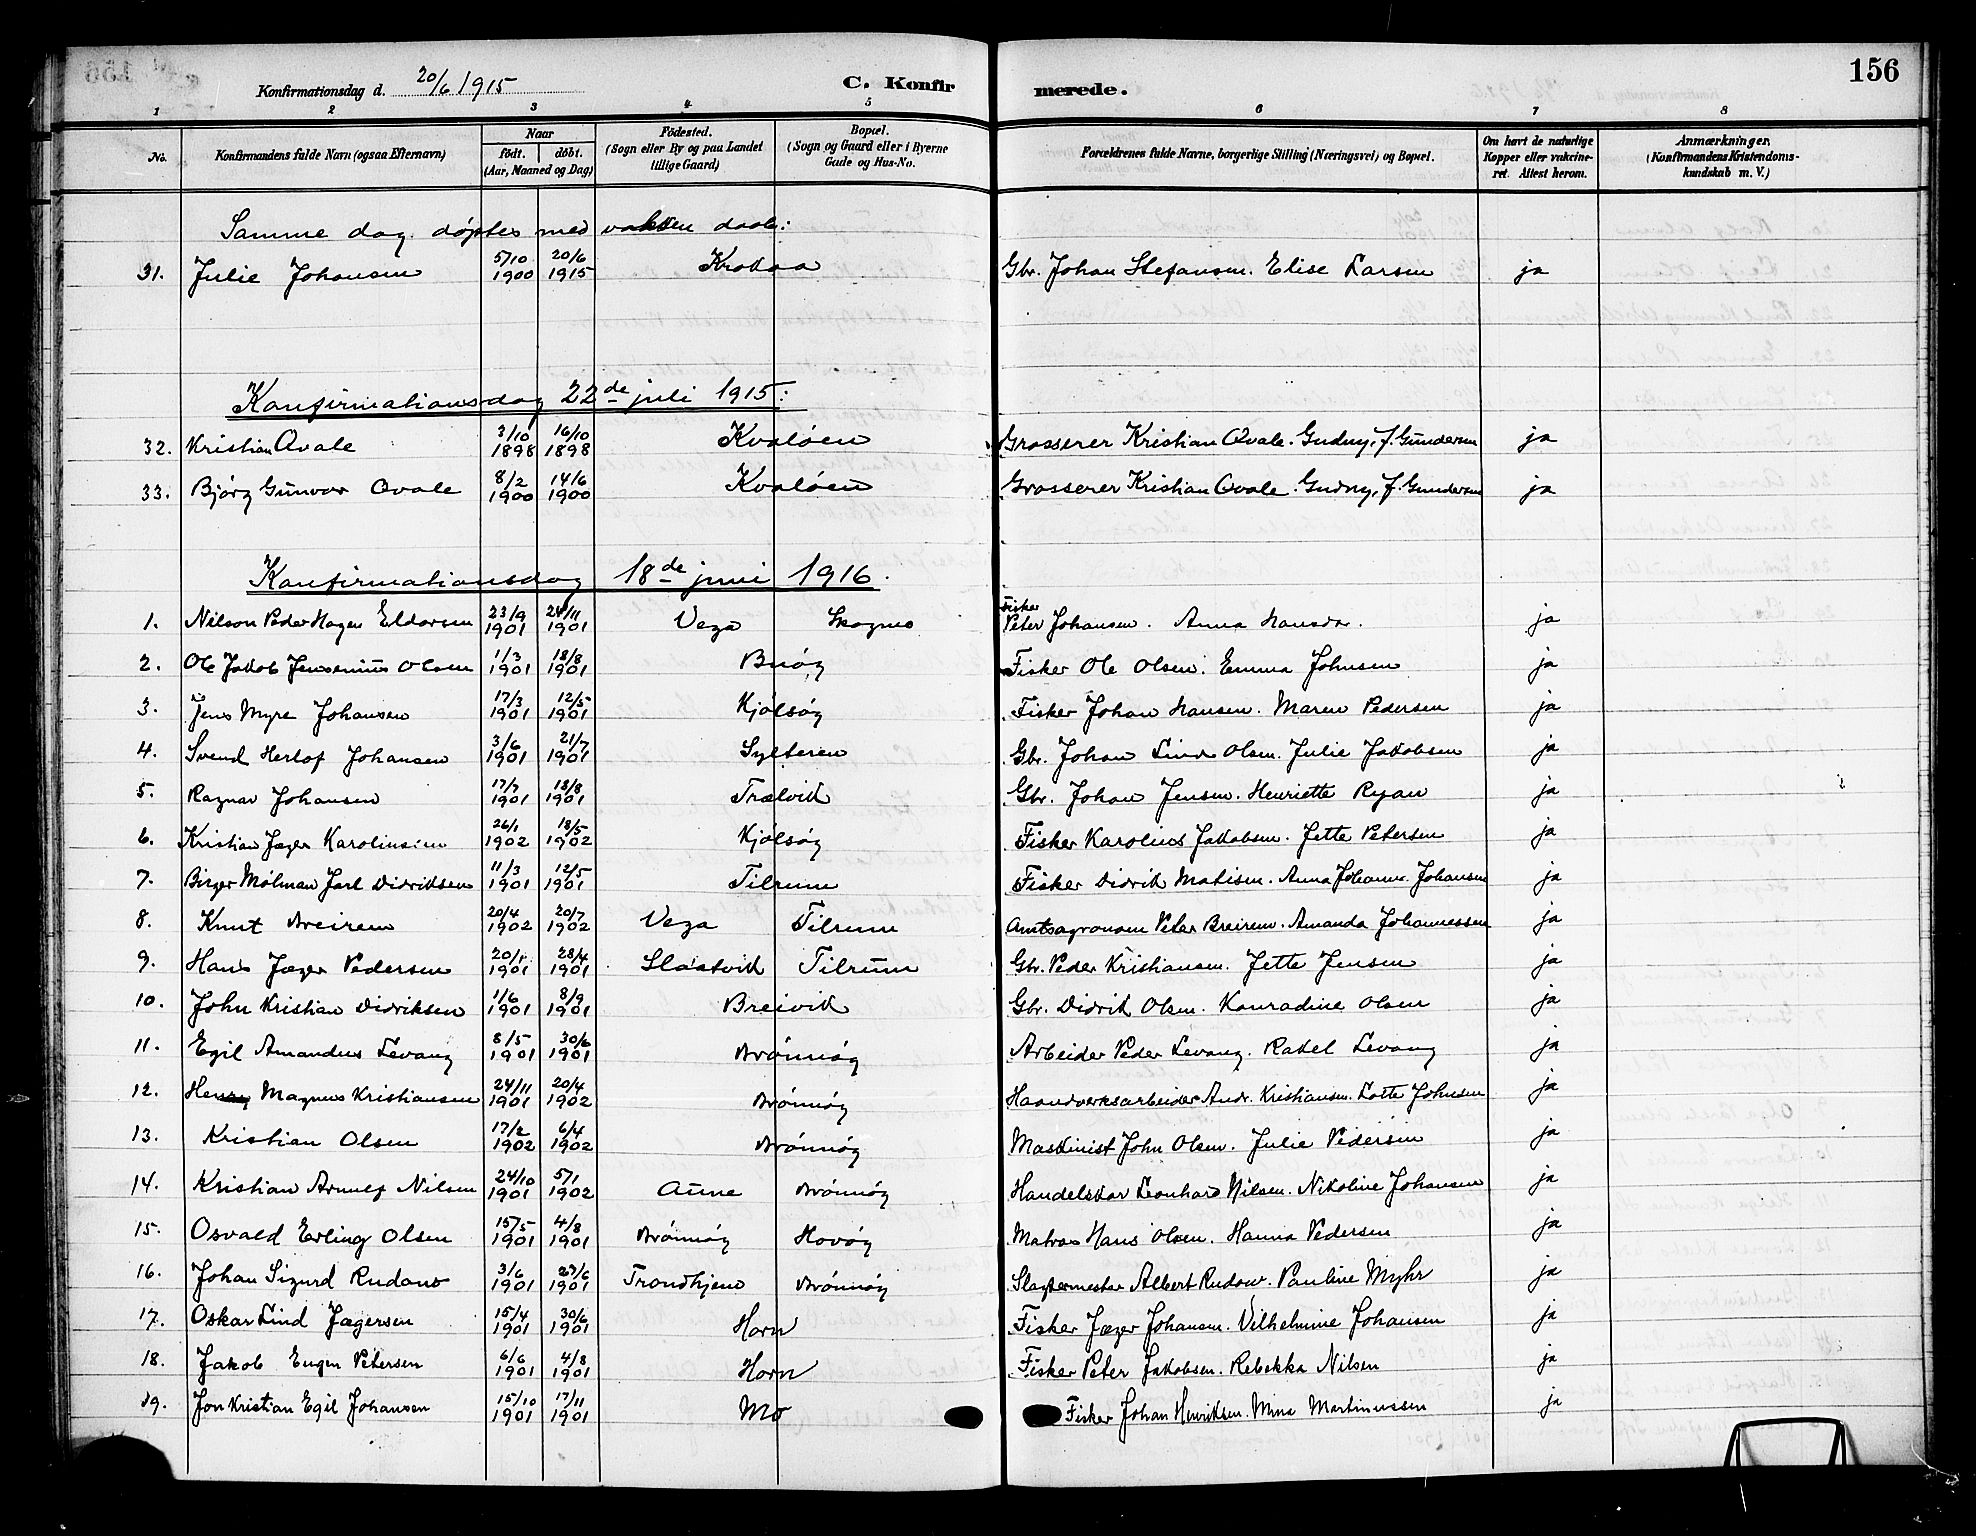 156
Konfirmationsdag d. 20/6 1915 C. Konfirmerede.
1 2 3 4 5 6 7 8
No. Konfirmandens fulde Navn (ogsaa Efternavn) Naar født. døbt. (Aar, Maaned og Dag) Födested. (Sogn eller By og paa Landet tillige Gaard) Bopæl. (Sogn og Gaard eller i Byerne Gade og Hus-No. Forældrenes fulde Navne, borgerlige Stilling (Næringsvei) og Bopæl. Om havt de naturlige Kopper eller vakcineret. Attest herom. Anmærkninger. (Konfirmandens Kristendomskundskab m. V.)
Samme dag døptes med voksen daab:
31. Julie Johansen 5/10 1900 20/6 1915 Krokaa Gbr. Johan Stefansen. Elise Larsen ja
Konfirmationsdag 22de juli 1915:
32. Kristian Qvale 3/10 1898 16/10 1898 Kvaløen Grosserer Kristian Qvale. Gudny, f. Gundersen ja
33. Bjørg Gunvor Qvale 8/2 1900 14/6 1900 Kvaløen Grosserer Kristian Qvale. Gudny, f. Gundersen ja
Konfirmationsdag 18de juni 1916.
1. Nilson Peder Hagen Eldorsen 23/9 1901 24/11 1901 Vega Skognes Fisker Peter Johansen. Anna Hansdr. ja
2. Ole Jakob Jensenius Olsen 1/3 1901 18/8 1901 Buøy Fisker Ole Olsen. Emma Johnsen ja
3. Jens Myre Johansen 17/3 1901 12/5 1901 Kjølsøy Fisker Johan Hansen. Maren Pedersen ja
4. Svend Herlof Johansen 3/6 1901 21/7 1901 Sylteren Gbr. Johan Lind Olsen. Julie Jakobsen ja
5. Ragnar Johansen 17/7 1901 18/8 1901 Trælvik Gbr. Johan Jensen. Henriette Ryan ja
6. Kristian Jæger Karolinsen 26/1 1902 18/5 1902 Kjølsøy Fisker Karolius Jakobsen. Jette Petersen ja
7. Birger Mølman Jarl Didriksen 11/3 1901 12/5 1901 Tilrum Fisker Didrik Matisen. Anna Johanne Johansen ja
8. Knut Breirem 20/4 1902 20/7 1902 Vega Tilrum Amtsagronom Peter Breirem. Amanda Johannessen ja
9. Hans Jæger Pedersen 20/1 1901 28/4 1901 Slaatvik Tilrum Gbr. Peder Kristiansen. Jette Jensen ja
10. John Kristian Didriksen 1/6 1901 8/9 1901 Breivik Gbr. Didrik Olsen. Konradine Olsen ja
11. Egil Amandus Levang 8/5 1901 30/6 1901 Brønnøy Arbeider Peder Levang. Rakel Levang ja
12. Henry Magnus Kristiansen 24/11 1901 20/4 1902 Brønnøy Haandverksarbeider Andr. Kristiansen. Lotte Johnsen ja
13. Kristian Olsen 17/2 1902 6/4 1902 Brønnøy Maskinist John Olsen. Julie Pedersen ja
14. Kristian Arnulf Nilsen 24/10 1901 5/1 1902 Aune Brønnøy Handelskar Leonhard Nilsen. Nikoline Johansen ja
15. Osvald Erling Olsen 15/5 1901 4/8 1901 Brønnøy Havøy Matros Hans Olsen. Hanna Pedersen ja
16. Johan Sigurd Rudow 3/6 1901 27/6 1901 Trondhjem Brønnøy Slagtermester Albert Rudow. Pauline Myhr ja
17. Oskar Lind Jægersen 15/4 1901 30/6 1901 Horn Fisker Jæger Johansen. Vilhelmine Johansen ja
18. Jakob Eugen Petersen 6/6 1901 4/8 1901 Horn Fisker Peter Jakobsen. Rebekka Nilsen ja
19. Jon Kristian Egil Johansen 15/10 1901 17/11 1901 Mo Fisker Johan Henriksen. Mina Martinussen ja